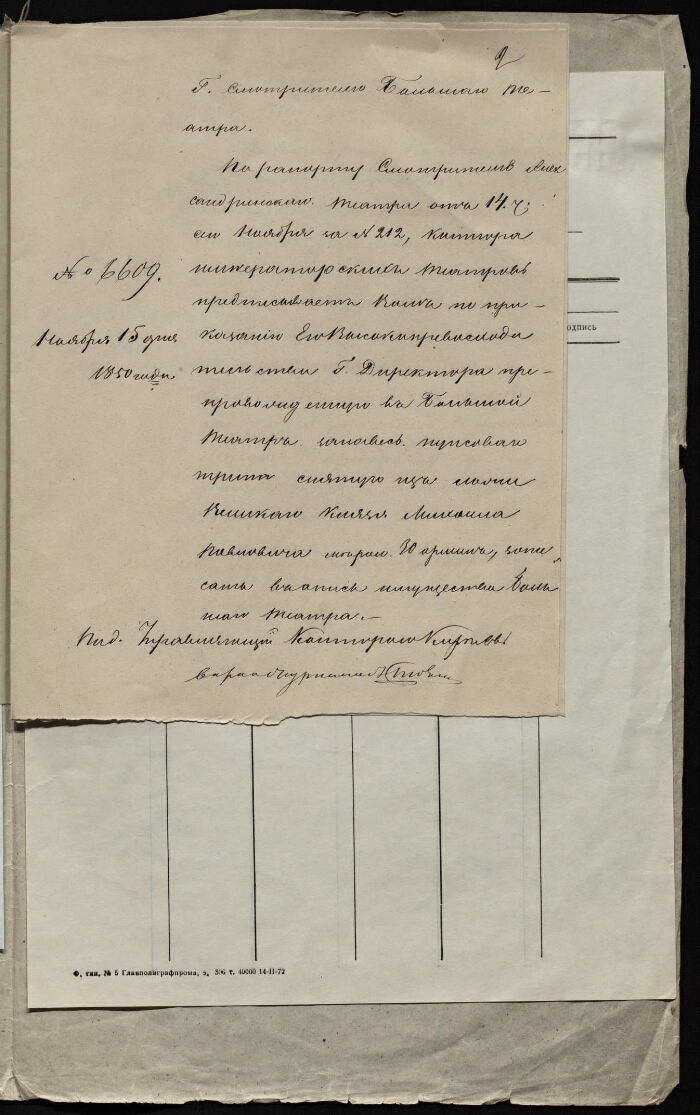 2
Г. Смотрителю Большаго Те-
атра.
По рапорту Смотрителя Алек
сандринскаго Театра отъ 14. ч:
сего Ноября за № 212, Контора
Императорскихъ Театровъ
предписываетъ Вамъ по при-
казанію Его Высокопревосходи
тельства Г. Директора пре-
провождаемую въ Большой
Театръ занавесь пунсоваго
трипа снятую изъ ложи
Великаго Князя Михаила
Павловича мерою 30 аршинъ, запи
сать въ опись имущества Боль
шаго Театра.-
№ 6609.
Ноября 15 дня
1850 года
Под. Управляющій Конторою
одпись
Ф. тип. № 5 Главполиграфпрома, з. 306 т. 40000 14-II-72